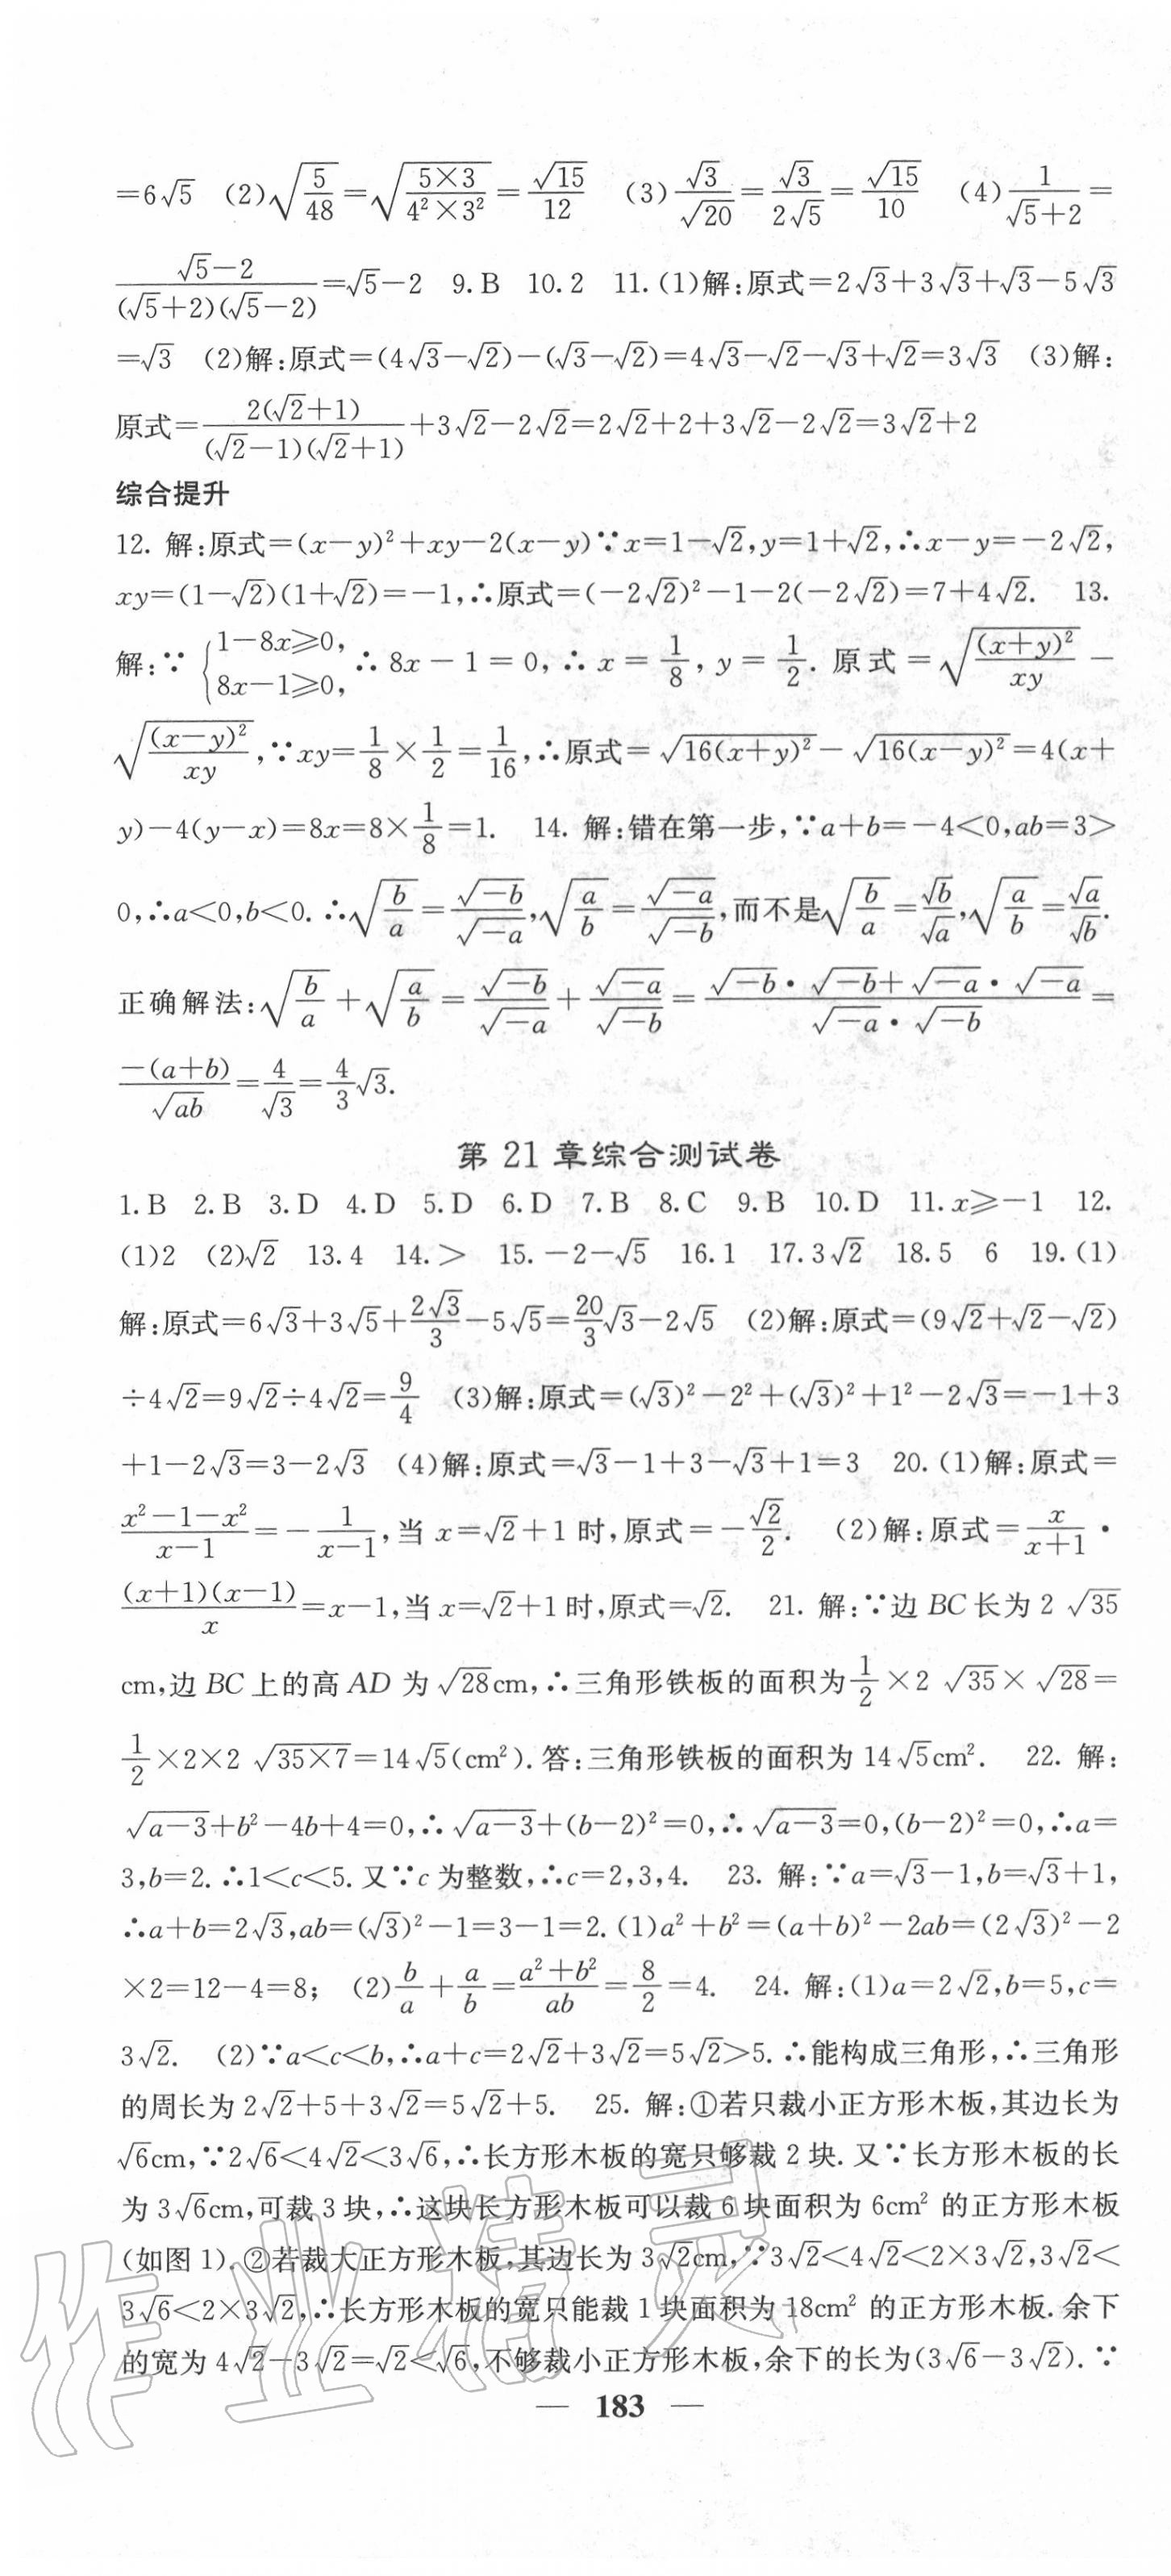 =6√5 (2)√(5/48)=√((5×3)/(4²×3²))=√15/12 (3)√3/√20=√3/(2√5)=√15/10 (4)1/(√5+2)=
(√5-2)/((√5+2)(√5-2))=√5-2 9.B 10.2 11.(1)解:原式=2√3+3√3+√3-5√3
=√3 (2)解:原式=(4√3-√2)-(√3-√2)=4√3-√2-√3+√2=3√3 (3)解:
原式=2(√2+1)/((√2-1)(√2+1))+3√2-2√2=2√2+2+3√2-2√2=3√2+2
综合提升
12. 解:原式=(x-y)²+xy-2(x-y)∵x=1-√2,y=1+√2,∴x-y=-2√2,
xy=(1-√2)(1+√2)=-1,∴原式=(-2√2)²-1-2(-2√2)=7+4√2. 13.
解:∵{1-8x≥0, 8x-1≥0, ∴8x-1=0,∴x=1/8,y=1/2. 原式=√((x+y)²/xy)-
√((x-y)²/xy),∵xy=1/8×1/2=1/16,∴原式=√(16(x+y)²)-√(16(x-y)²)=4(x+
y)-4(y-x)=8x=8×1/8=1. 14. 解:错在第一步,∵a+b=-4<0,ab=3>
0,∴a<0,b<0.∴√(b/a)=√(-b)/√(-a),√(a/b)=√(-a)/√(-b),而不是√(b/a)=√b/√a,√(a/b)=√a/√b.
正确解法:√(b/a)+√(a/b)=√(-b)/√(-a)+√(-a)/√(-b)=(√(-b)·√(-b)+√(-a)·√(-a))/(√(-a)·√(-b))=
-(a+b)/√(ab)=4/√3=4/3√3.
第 21 章综合测试卷
1.B 2.B 3.D 4.D 5.D 6.D 7.B 8.C 9.B 10.D 11.x≥-1 12.
(1)2 (2)√2 13.4 14.> 15.-2-√5 16.1 17.3√2 18.5 6 19.(1)
解:原式=6√3+3√5+2√3/3-5√5=20/3√3-2√5 (2)解:原式=(9√2+√2-√2)
÷4√2=9√2÷4√2=9/4 (3)解:原式=(√3)²-2²+(√3)²+1²-2√3=-1+3
+1-2√3=3-2√3 (4)解:原式=√3-1+3-√3+1=3 20.(1)解:原式=
(x²-1-x²)/(x-1)=-1/(x-1),当x=√2+1时,原式=-√2/2. (2)解:原式=x/(x+1)·
(x+1)(x-1)/x=x-1,当x=√2+1时,原式=√2. 21. 解:∵边BC长为2√35
cm,边BC上的高AD为√28cm,∴三角形铁板的面积为1/2×2√35×√28=
1/2×2×2√(35×7)=14√5(cm²).答:三角形铁板的面积为14√5cm². 22. 解:
√(a-3)+b²-4b+4=0,∴√(a-3)+(b-2)²=0,∴√(a-3)=0,(b-2)²=0,∴a=
3,b=2.∴1<c<5.又∵c为整数,∴c=2,3,4. 23. 解:∵a=√3-1,b=√3+1,
∴a+b=2√3,ab=(√3)²-1=3-1=2.(1)a²+b²=(a+b)²-2ab=(2√3)²-2
×2=12-4=8; (2)b/a+a/b=(a²+b²)/ab=8/2=4. 24. 解:(1)a=2√2,b=5,c=
3√2. (2)∵a<c<b,∴a+c=2√2+3√2=5√2>5.∴能构成三角形,∴三角形
的周长为2√2+5+3√2=5√2+5. 25. 解:①若只裁小正方形木板,其边长为
√6cm,∵2√6<4√2<3√6,∴长方形木板的宽只够裁2块.又∵长方形木板的长
为3√6cm,可裁3块,∴这块长方形木板可以裁6块面积为6cm²的正方形木板
(如图1).②若裁大正方形木板,其边长为3√2cm,∵3√2<4√2<2×3√2,3√2<
3√6<2×3√2,∴长方形木板的宽只能裁1块面积为18cm²的正方形木板.余下
的宽为4√2-3√2=√2<√6,不够裁小正方形木板,余下的长为(3√6-3√2).∵
— 183 —
作业精灵